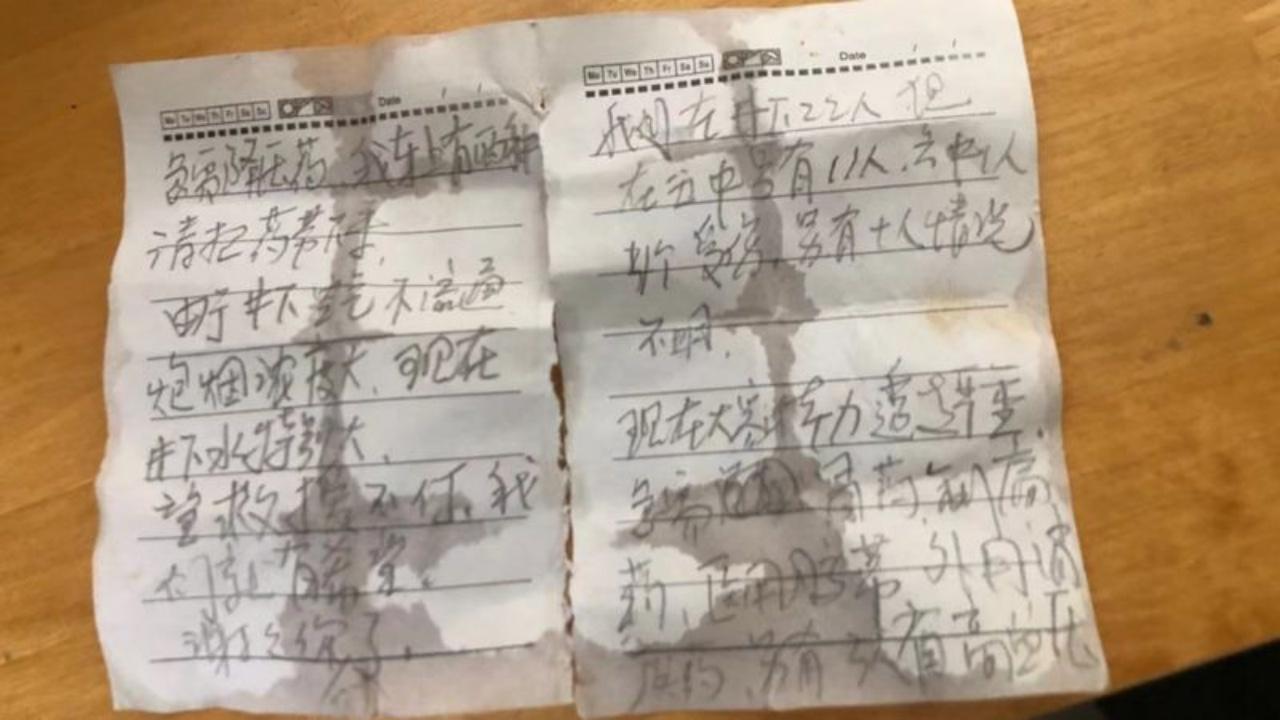 Mo Tu We Th Fr Sa Su Date
我们在井下22人 但
在五中段有11人.六中1人
受伤.另有十人情况
不明.
现在大家体力透支严重.
急需 胃药 止痛
药、医用胶带 外用消
炎药、另有 3人有高血压
Mo Tu We Th Fr Sa Su Date
急需降压药、我车上有两种
请把药带下来.
由于井下空气不流通.
炮烟浓度大.现在
井下水特别大.
望救援不停.我
们就有希望.
谢谢你们了.